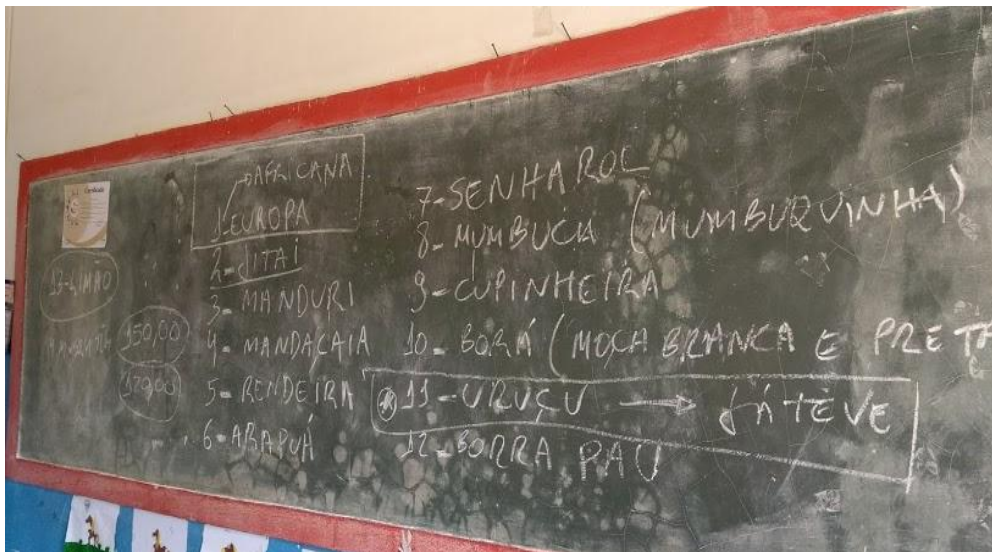 AFRICANA
1-EUROPA
2-JITAÍ
3-MANDURI
4-MANDAÇAIA
5-RENDEIRA
6-ARAPUÁ
7-SENHAROL
8-MUMBUCA (MUMBUQUINHA)
9-CUPINHEIRA
10-BORÁ (MOÇA BRANCA E PRETA
11-URUÇU → JÁ TEVE
12-BORRA PAU
13-LIMÃO
150,00
170,00